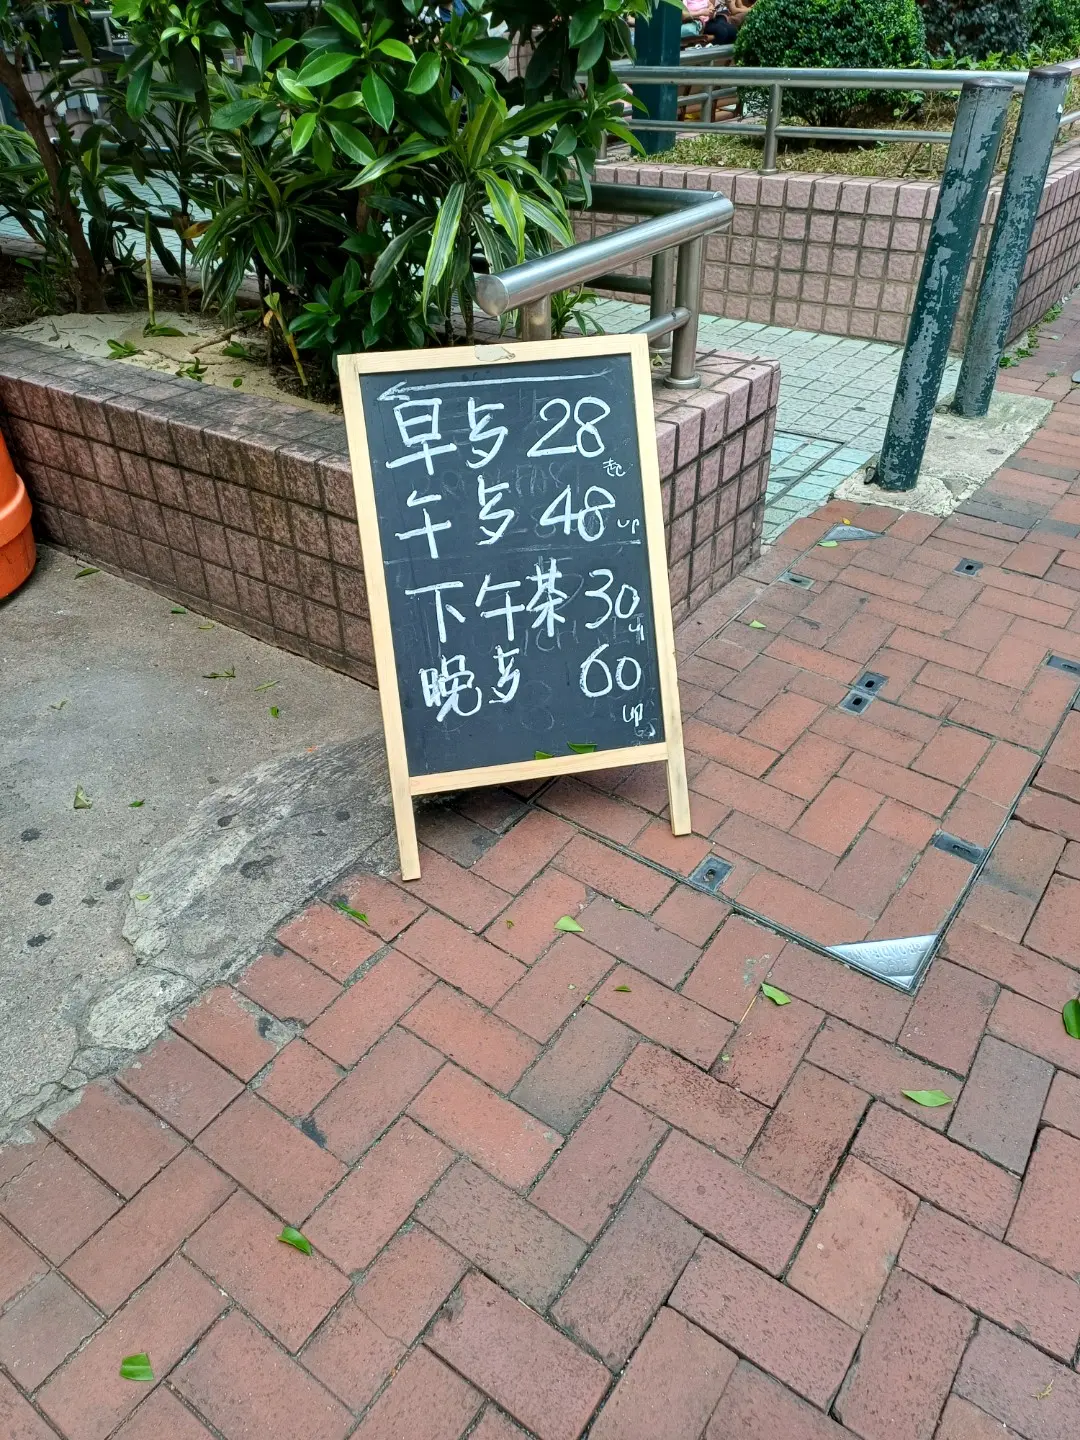 早歺 28 起
午歺 48 up
下午茶 30 up
晚歺 60 up